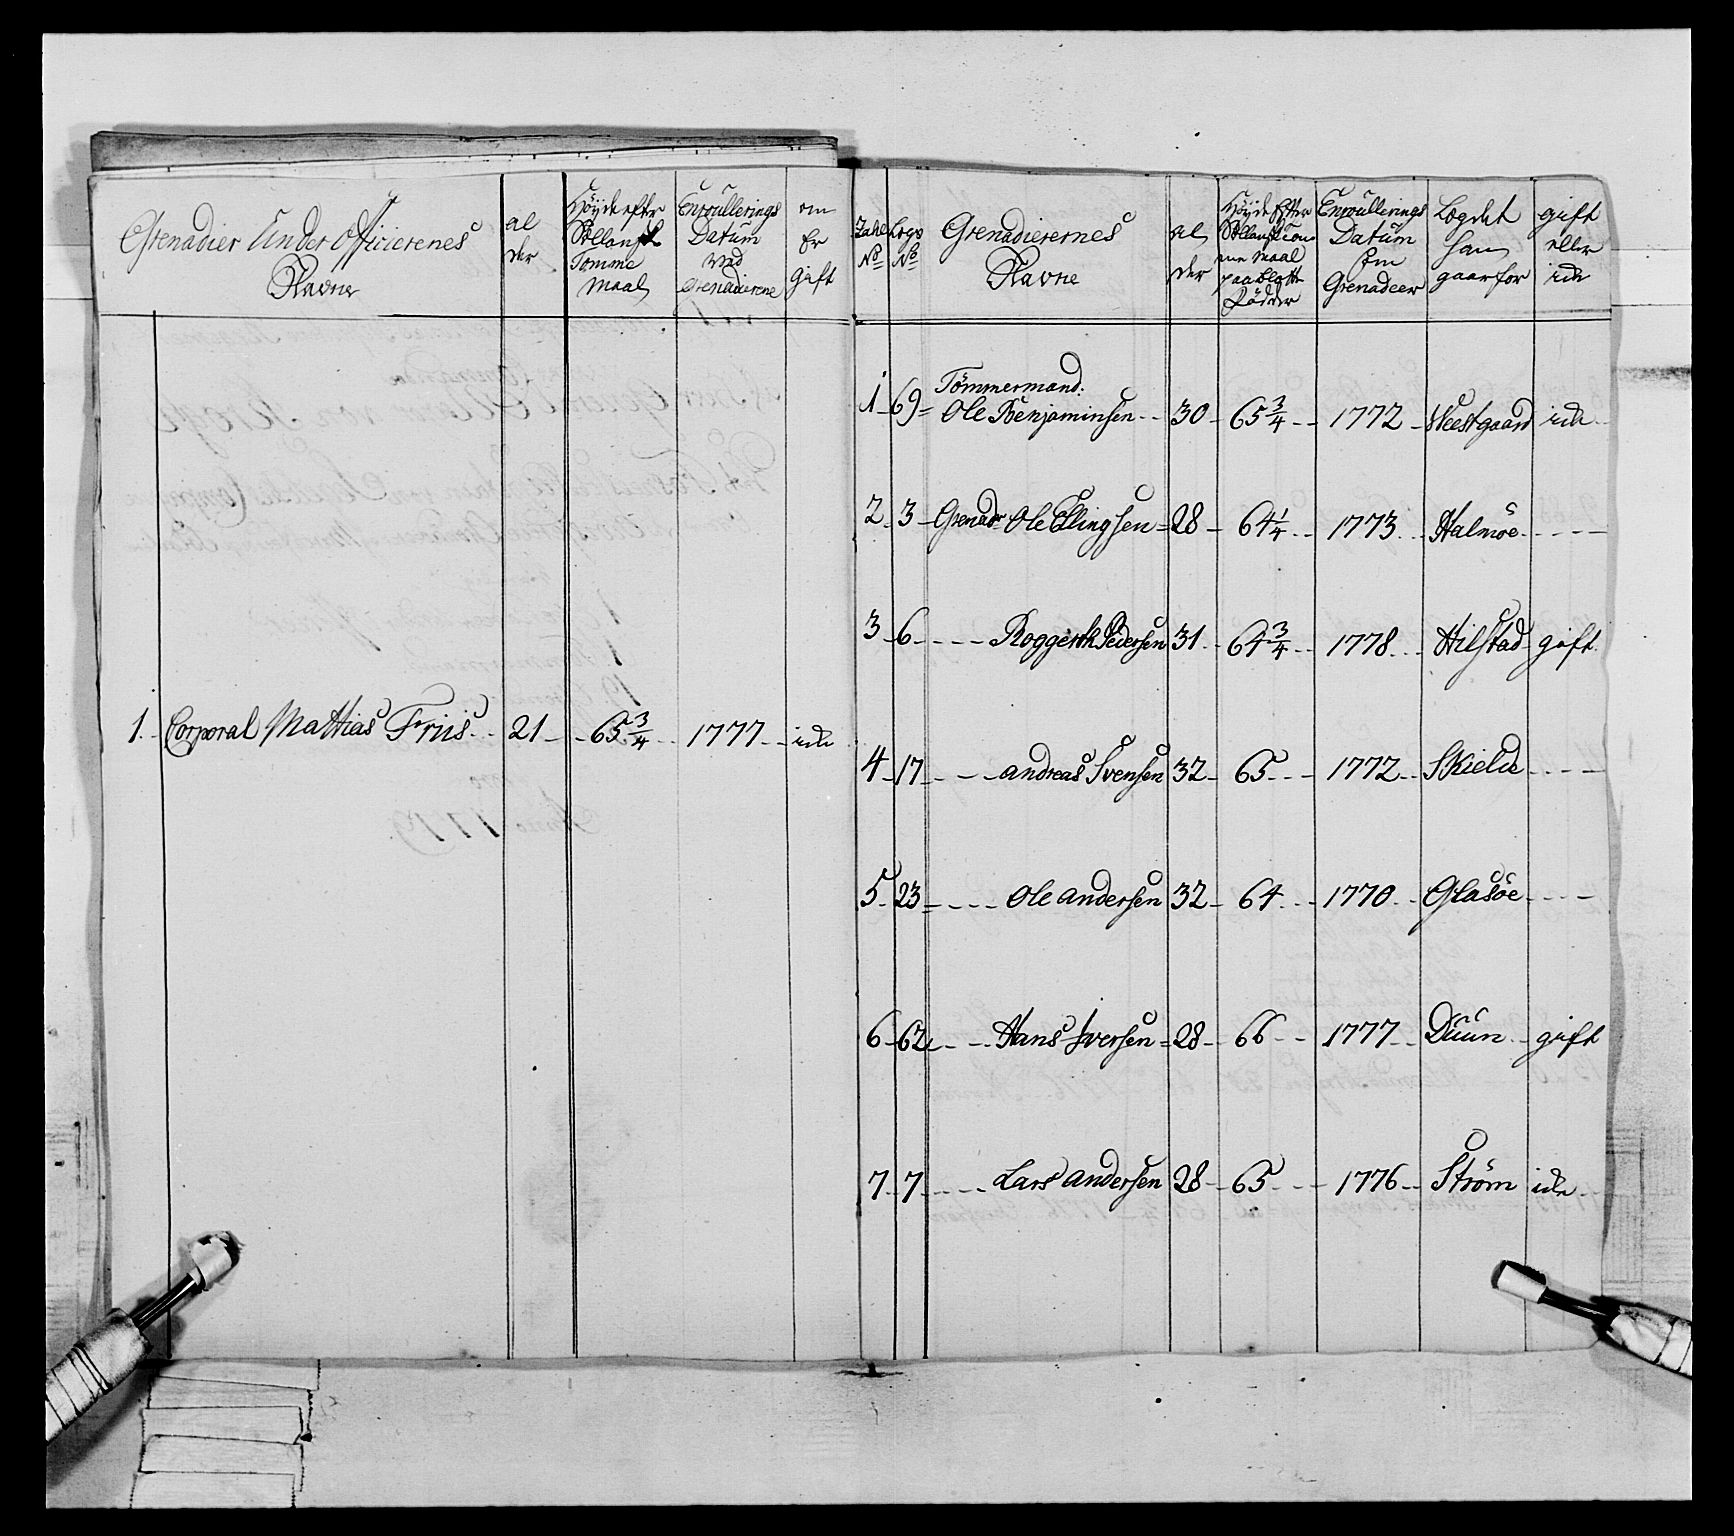 Grenadier Under Officierenes
Navne
al
der
Höyde efter
Sællansk
Tomme
Maal
Enroullerings
Datum
ved
Grenadierene
om
Er
gift
1. Corporal Mathias Friis 21 65 3/4 1777 ide
Zahl
No
Logs
No
Grenadierernes
Navne
al
der
Höyde Efter
Maal
paa blotte
Födder
Enroullerings
Datum
Grenadeer
Legdet
han
gaar for
gift
eller
ide
Tömmermand:
1 69 Ole Benjaminsen 30 65 3/4 1772 Westgaard ide
2 3 Grenadr Ole Ellingsen 28 64 1/4 1773 Halmöe
3 6 Roggerth Pedersen 31 64 3/4 1778 Hilstad gift
4 17 Andreas Svensen 32 65 1772 Skielde
5 23 Ole Andersen 32 64 1770 Glasöe
6 62 Hans Iversen 28 66 1777 Duun gift
7 7 Lars Andersen 28 65 1776 Ström ide